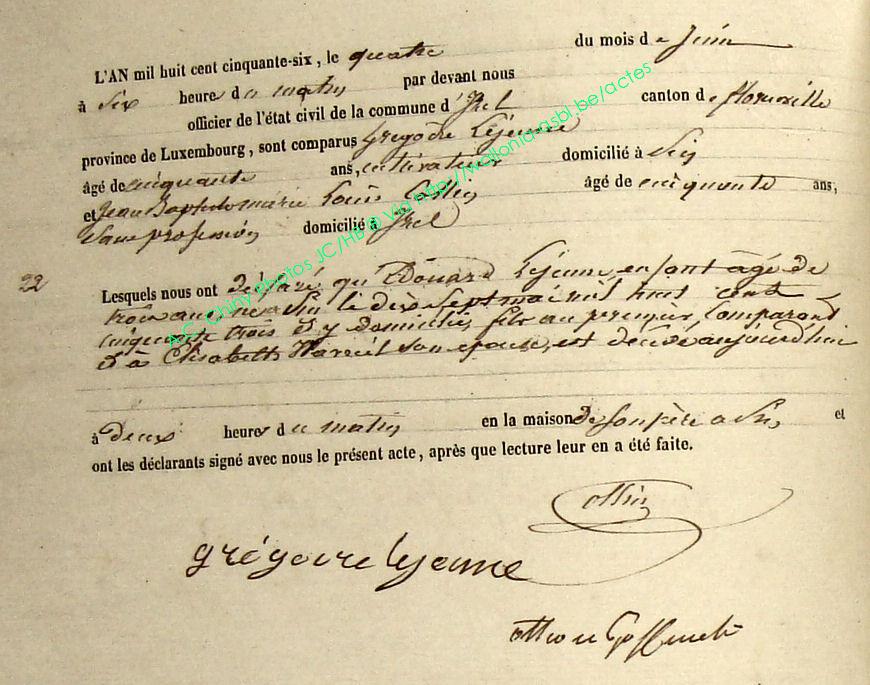 L'AN mil huit cent cinquante-six, le quatre du mois de Juin
à Six heures du matin par devant nous
officier de l'état civil de la commune d'Izel canton de florenville
province de Luxembourg, sont comparus Grégoire Lejeune
âgé de cinquante ans, cultivateur domicilié à
et Jean Baptiste marie Louis âgé de cinquante ans,
Sans profession domicilié à Izel
22
Lesquels nous ont déclaré qu'Edouard Lejeune, enfant âgé de
trois ans, le dix Sept mai mil huit cent
cinquante trois & y domicilié, fils au premier Comparant
& à Elisabeth son épouse, est décédé aujourd'hui
à deux heures du matin en la maison de son père a et
ont les déclarants signé avec nous le présent acte, après que lecture leur en a été faite.
grégoire lejeune
A.C. Chiny Photos JC/HB@ via http://wallonia-asbl.be/actes